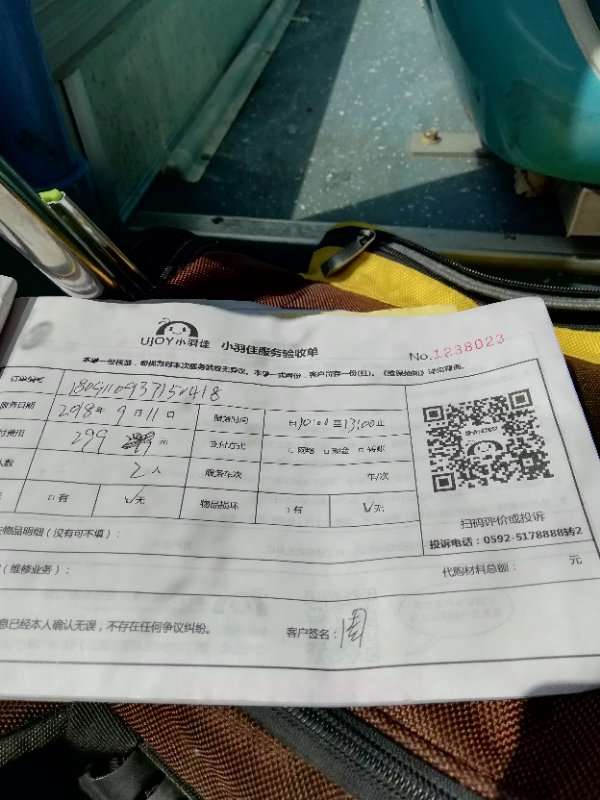 UJOY小羽佳 小羽佳服务验收单
No.1238023
订单编号 1809110937150418
服务日期 2018年9月11日 服务时间 自10:00至13:00止
付费用 299 元 支付方式 □网络 □现金 □转账
人数 2人 服务车次 车/次
□有 ☑无 物品损坏 □有 ☑无
扫码评价或投诉
投诉电话:0592-5178888转2
物品明细(没有可不填):
(维修业务): 代购材料总额: 元
息已经本人确认无误,不存在任何争议纠纷。 客户签名:周